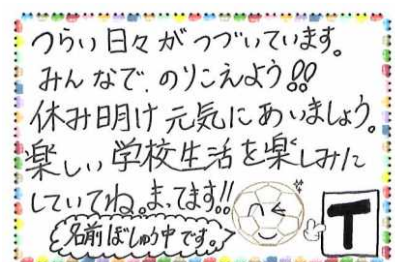 つらい日々がつづいています。
みんなで、のりこえよう!!
休み明け元気にあいましょう。
楽しい学校生活を楽しみに
していてね。まってます!!
名前ぼしゅう中です。
T